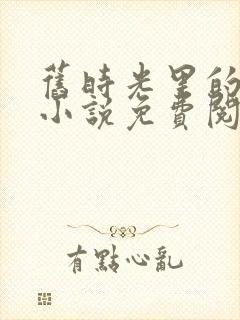 舊時光里的
小說免費閱
有點心亂